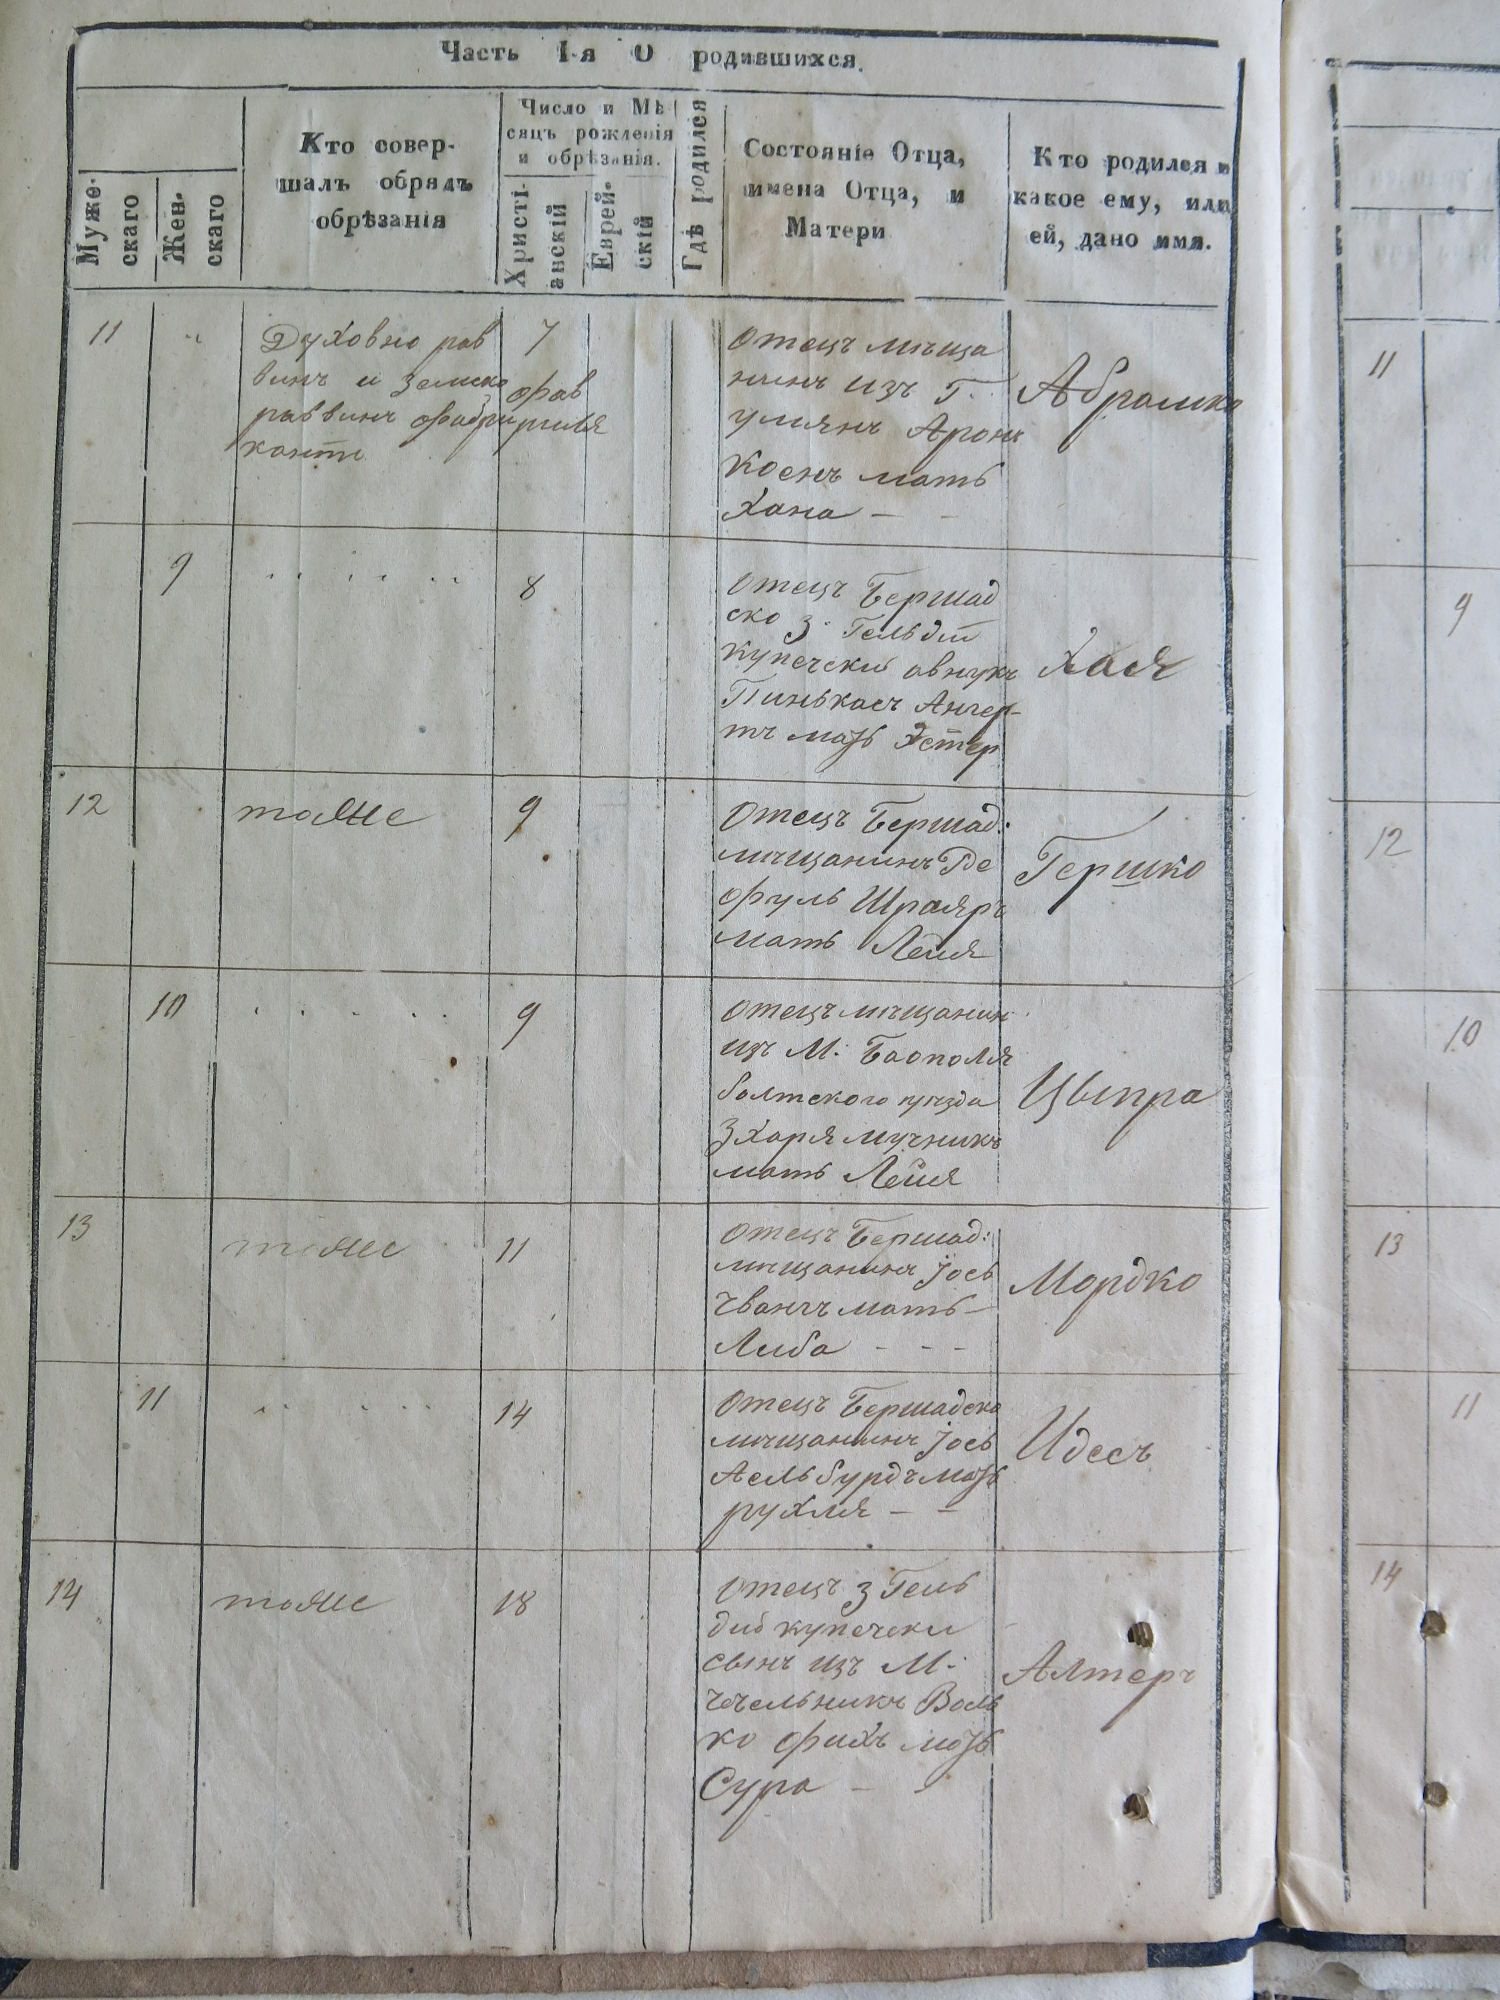 Часть I-я О родившихся.
Мужескаго
Женскаго
Кто совер-
шалъ обрядъ
обрѣзанія
Число и Мѣ
сяцъ рожденія
и обрѣзанія.
Христі-
анскій
Еврей-
скій
Гдѣ родился
Состояніе Отца,
имена Отца, и
Матери
Кто родился и
какое ему, или
ей, дано имя.
11
Духовно рав
винъ и
раввинъ фабри
кантъ
7
фев
раля
отецъ мѣща
нинъ изъ Г.
умянъ Аронъ
Коенъ мать
Хана - -
Абрамко
9
8
отецъ Бершад
ско 3. Гельдiй
купечески внукъ
Пинькасъ
мать Эстер
Хая
12
тоже
9
отецъ Бершад:
мѣщанинъ Ре
фуль
мать Лейя
Гершко
10
9
отецъ мѣщанин
изъ М:
балтского уѣзда
Зхаря мучникъ
мать Лейя
Ципра
13
тоже
11
отецъ Бершад:
мѣщанинъ Іось
мать -
Либа - - -
Мордко
11
14
отецъ Бершадско
мѣщанинъ Іось
мать
рухля - -
Идесъ
14
тоже
18
отецъ 3 Гель
дій купечески
сынъ изъ М:
чечельникъ Воль
ко фихъ мать
Сура -
Алтеръ
11
9
12
10
13
11
14